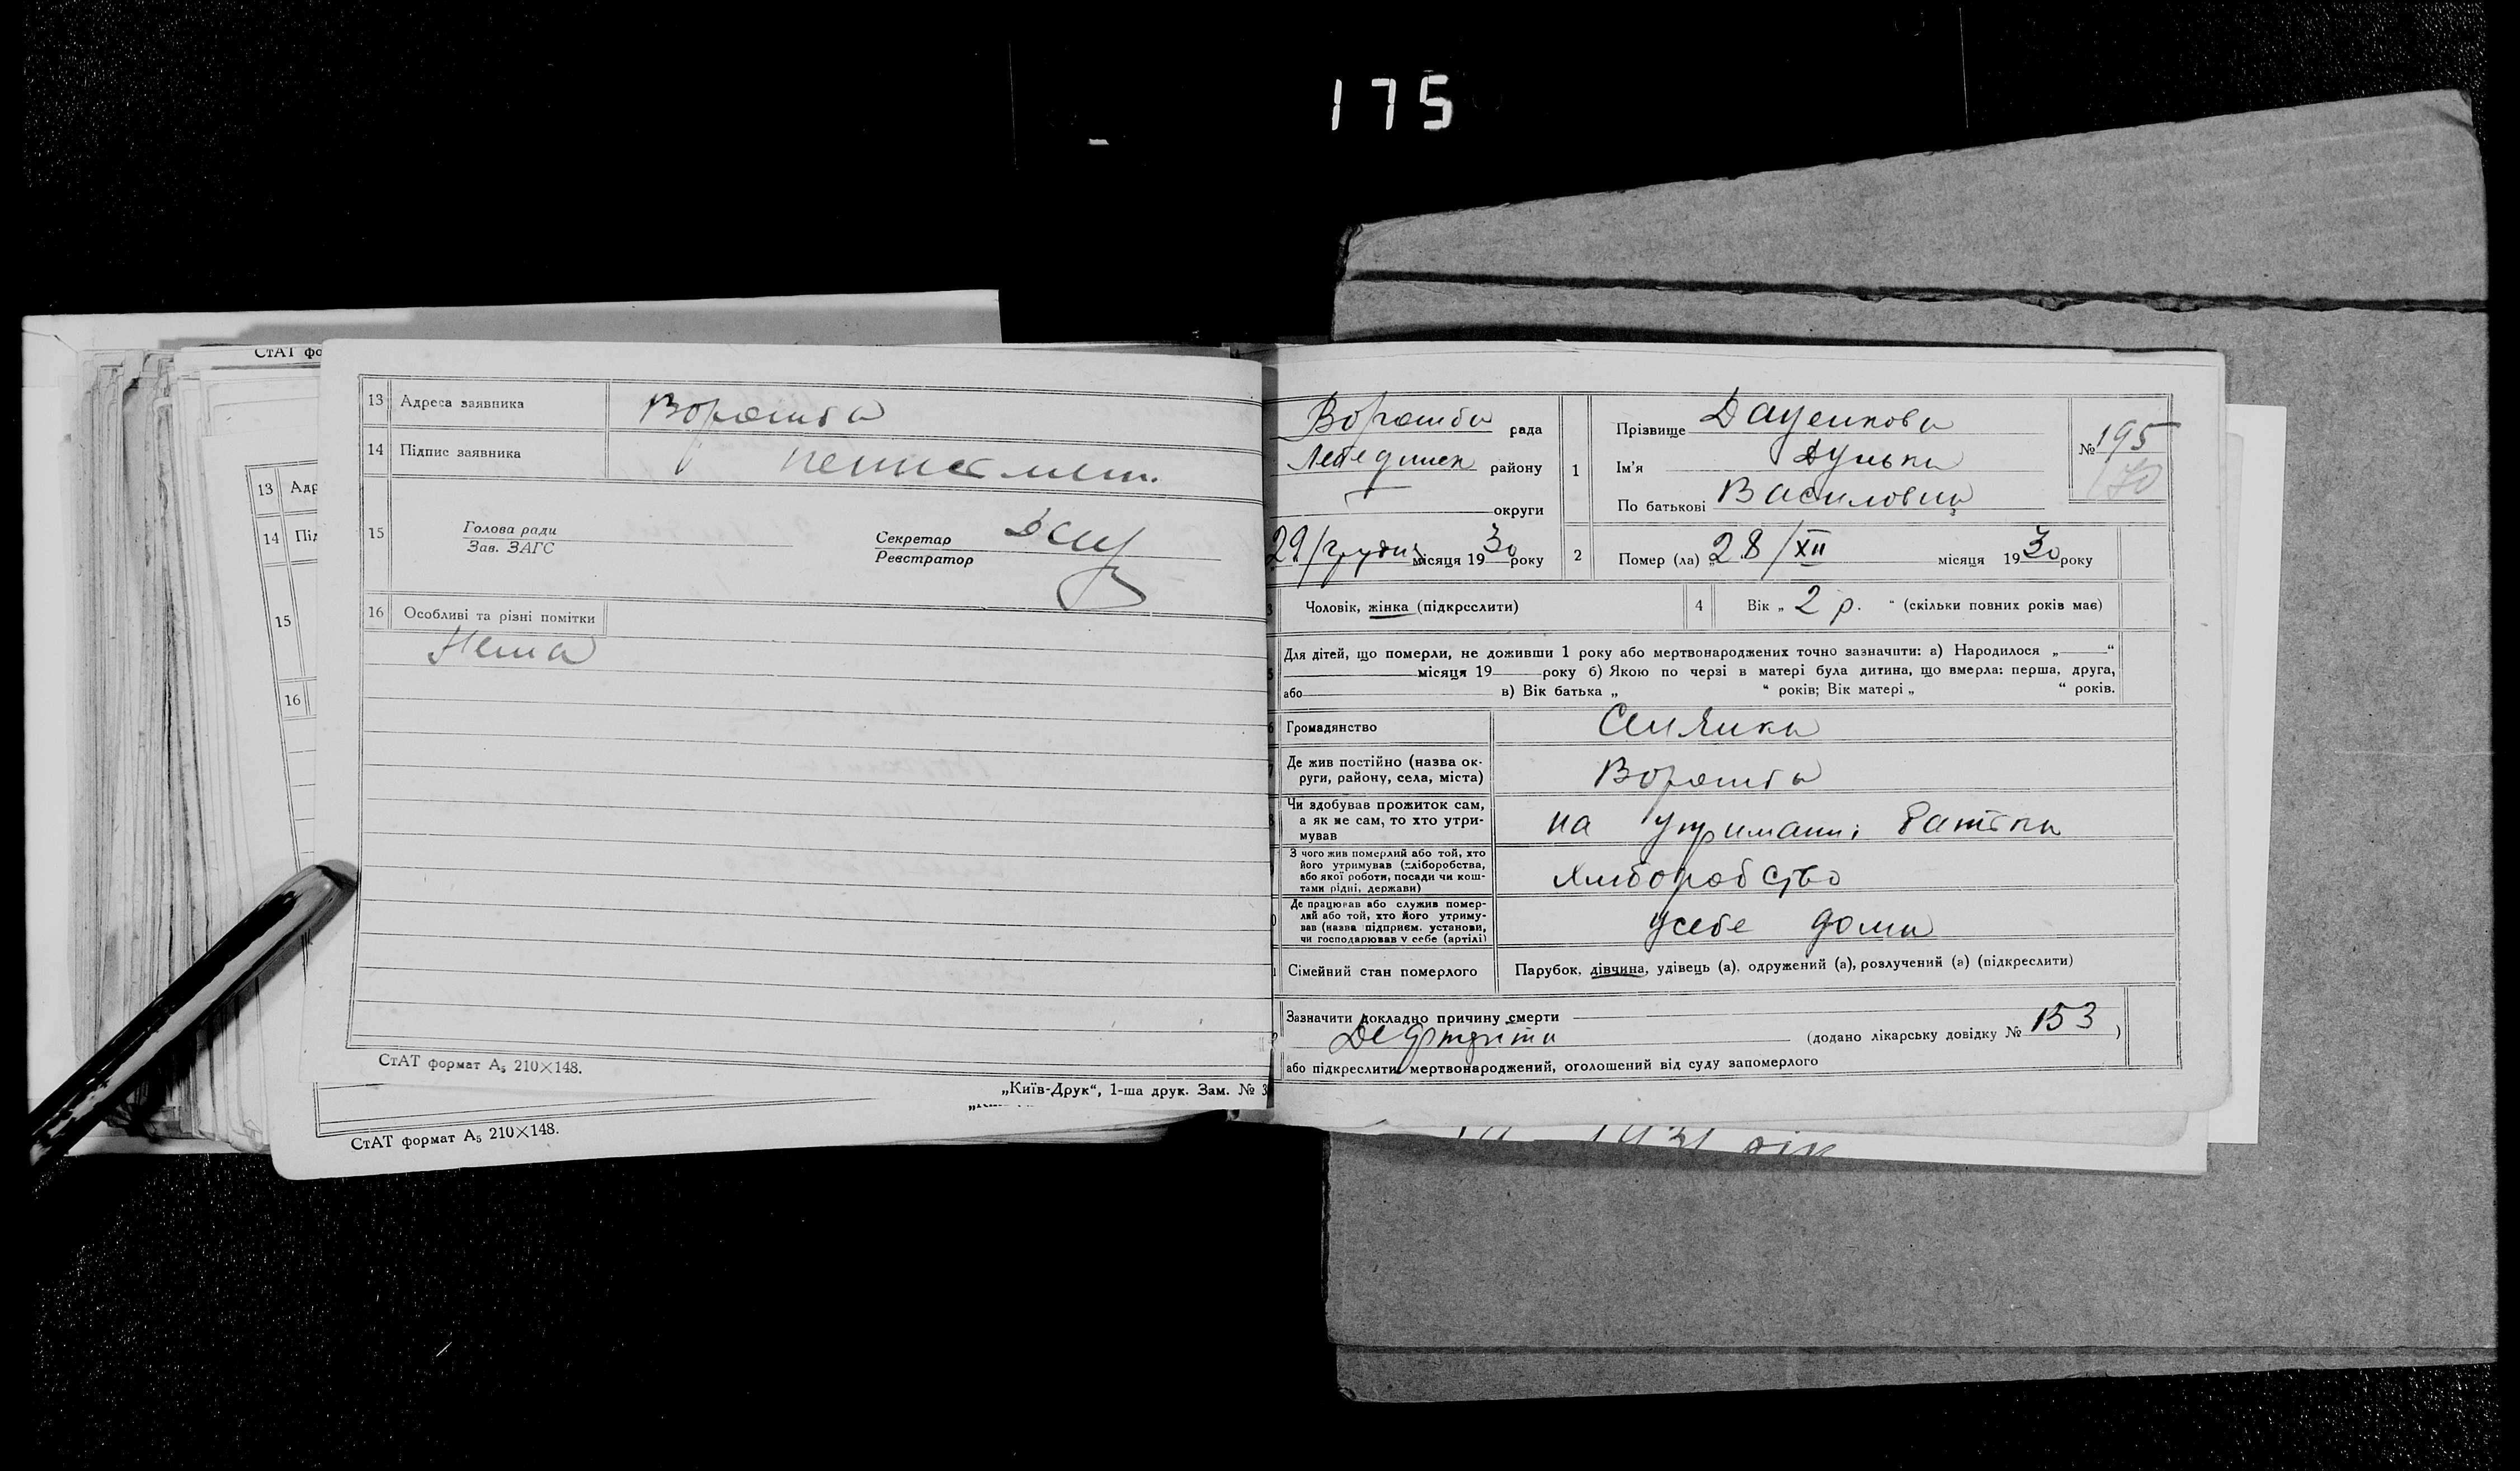 175
СтАТ фо
13 Адр
14 Під
15
16
13 Адреса заявника Ворожба
14 Підпис заявника неписьмен.
15 Голова ради
Зав. ЗАГС
Секретар
Реєстратор
16 Особливі та різні помітки
Нема
СтАТ формат А₅ 210×148.
„Київ-Друк“, 1-ша друк. Зам. № 3
СтАТ формат А₅ 210×148.
Ворожба рада
Лебединск району
округи
29/грудня місяця 1930 року
1 Прізвище Даценкова
Ім'я Дунька
По батькові Василовна
№ 195
70
2 Помер (ла) „28/XII місяця 1930 року
Чоловік, жінка (підкреслити)
4 Вік „ 2 р. “ (скільки повних років має)
Для дітей, що померли, не доживши 1 року або мертвонароджених точно зазначити: а) Народилося „ “
місяця 19 року б) Якою по черзі в матері була дитина, що вмерла: перша, друга,
або в) Вік батька „ “ років; Вік матері „ “ років.
Громадянство Силянка
Де жив постійно (назва ок-
руги, району, села, міста) Ворожба
Чи здобував прожиток сам,
а як не сам, то хто утри-
мував на утриманні батька
З чого жив померлий або той, хто
його утримував (хліборобства,
або якої роботи, посади чи кош-
тами рідні, держави) Хліборобство
Де працював або служив помер-
лий або той, хто його утриму-
вав (назва підприєм. установи,
чи господарював у себе (артілі) усебе дома
Сімейний стан померлого Парубок, дівчина, удівець (а), одружений (а), розлучений (а) (підкреслити)
Зазначити докладно причину смерти
(додано лікарську довідку № 153 )
або підкреслити мертвонароджений, оголошений від суду запомерлого
1931 рік